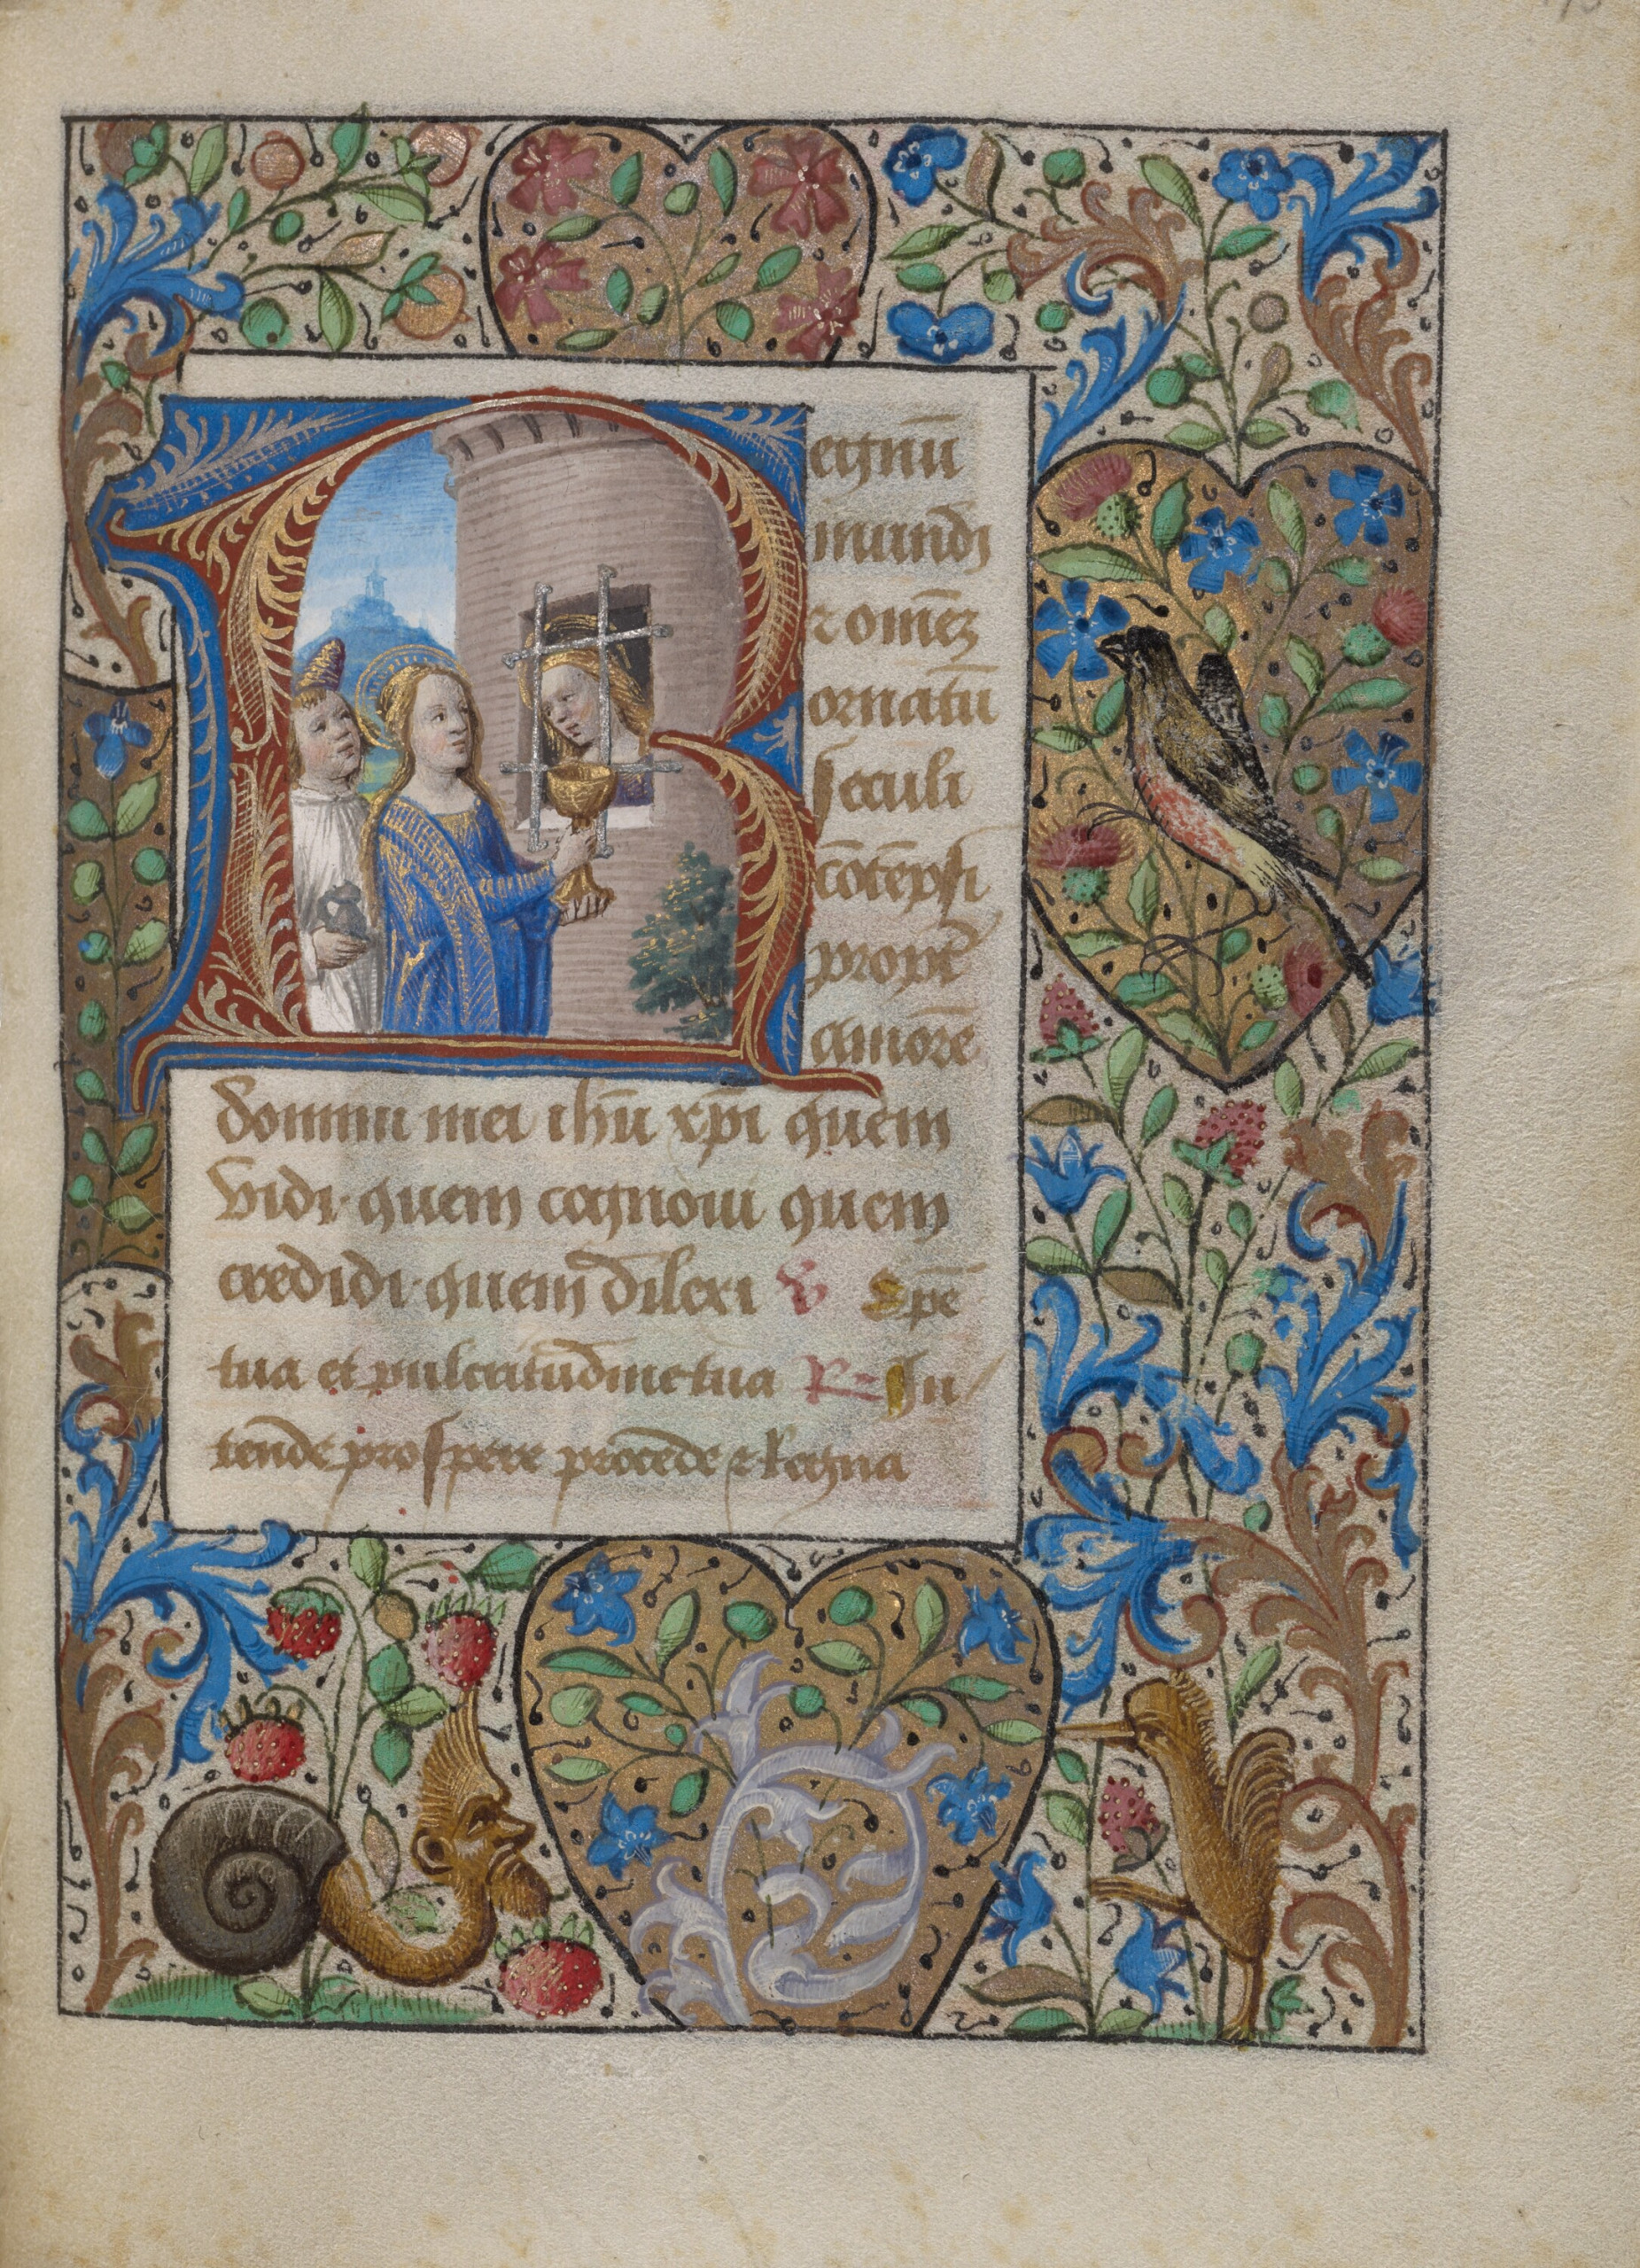 Regnū
mundi
⁊ om̄ez
ornatū
seculi
cōtēpsi
propt̄
amorē
domini mei ihū xp̄i quem
Vidi· quem cognoui quem
credidi· quem dilexi ℣ Spē
tua et pulcritudine tua ℟ In
tende prospere procede ⁊ Regna